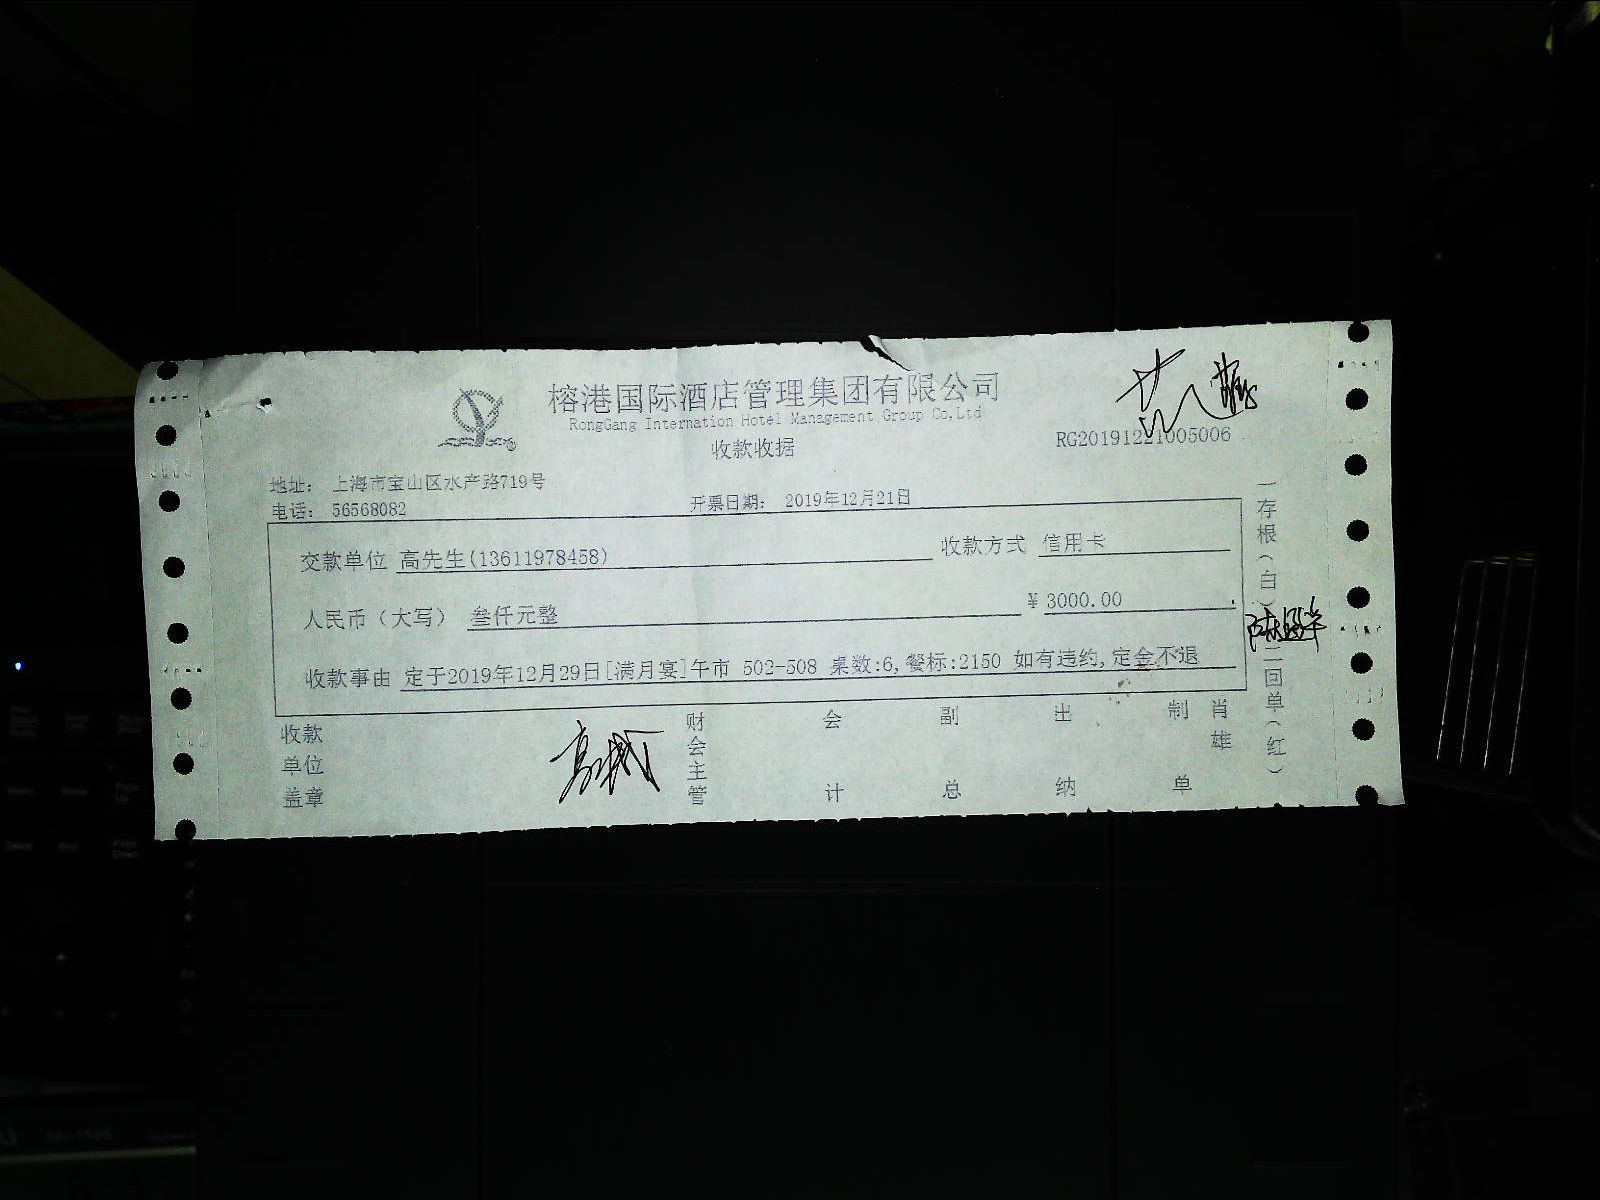 榕港国际酒店管理集团有限公司
RongGang Internation Hotel Management Group Co.Ltd
收款收据
RG20191221005006
地址: 上海市宝山区水产路719号
电话: 56568082
开票日期: 2019年12月21日
交款单位 高先生(13611978458) 收款方式 信用卡
人民币(大写) 叁仟元整 ¥ 3000.00
收款事由 定于2019年12月29日[满月宴]午市 502-508 桌数:6,餐标:2150 如有违约,定金不退
收款单位盖章
财会主管
会计
副总
出纳
制单
肖雄
一存根(白)二回单(红)